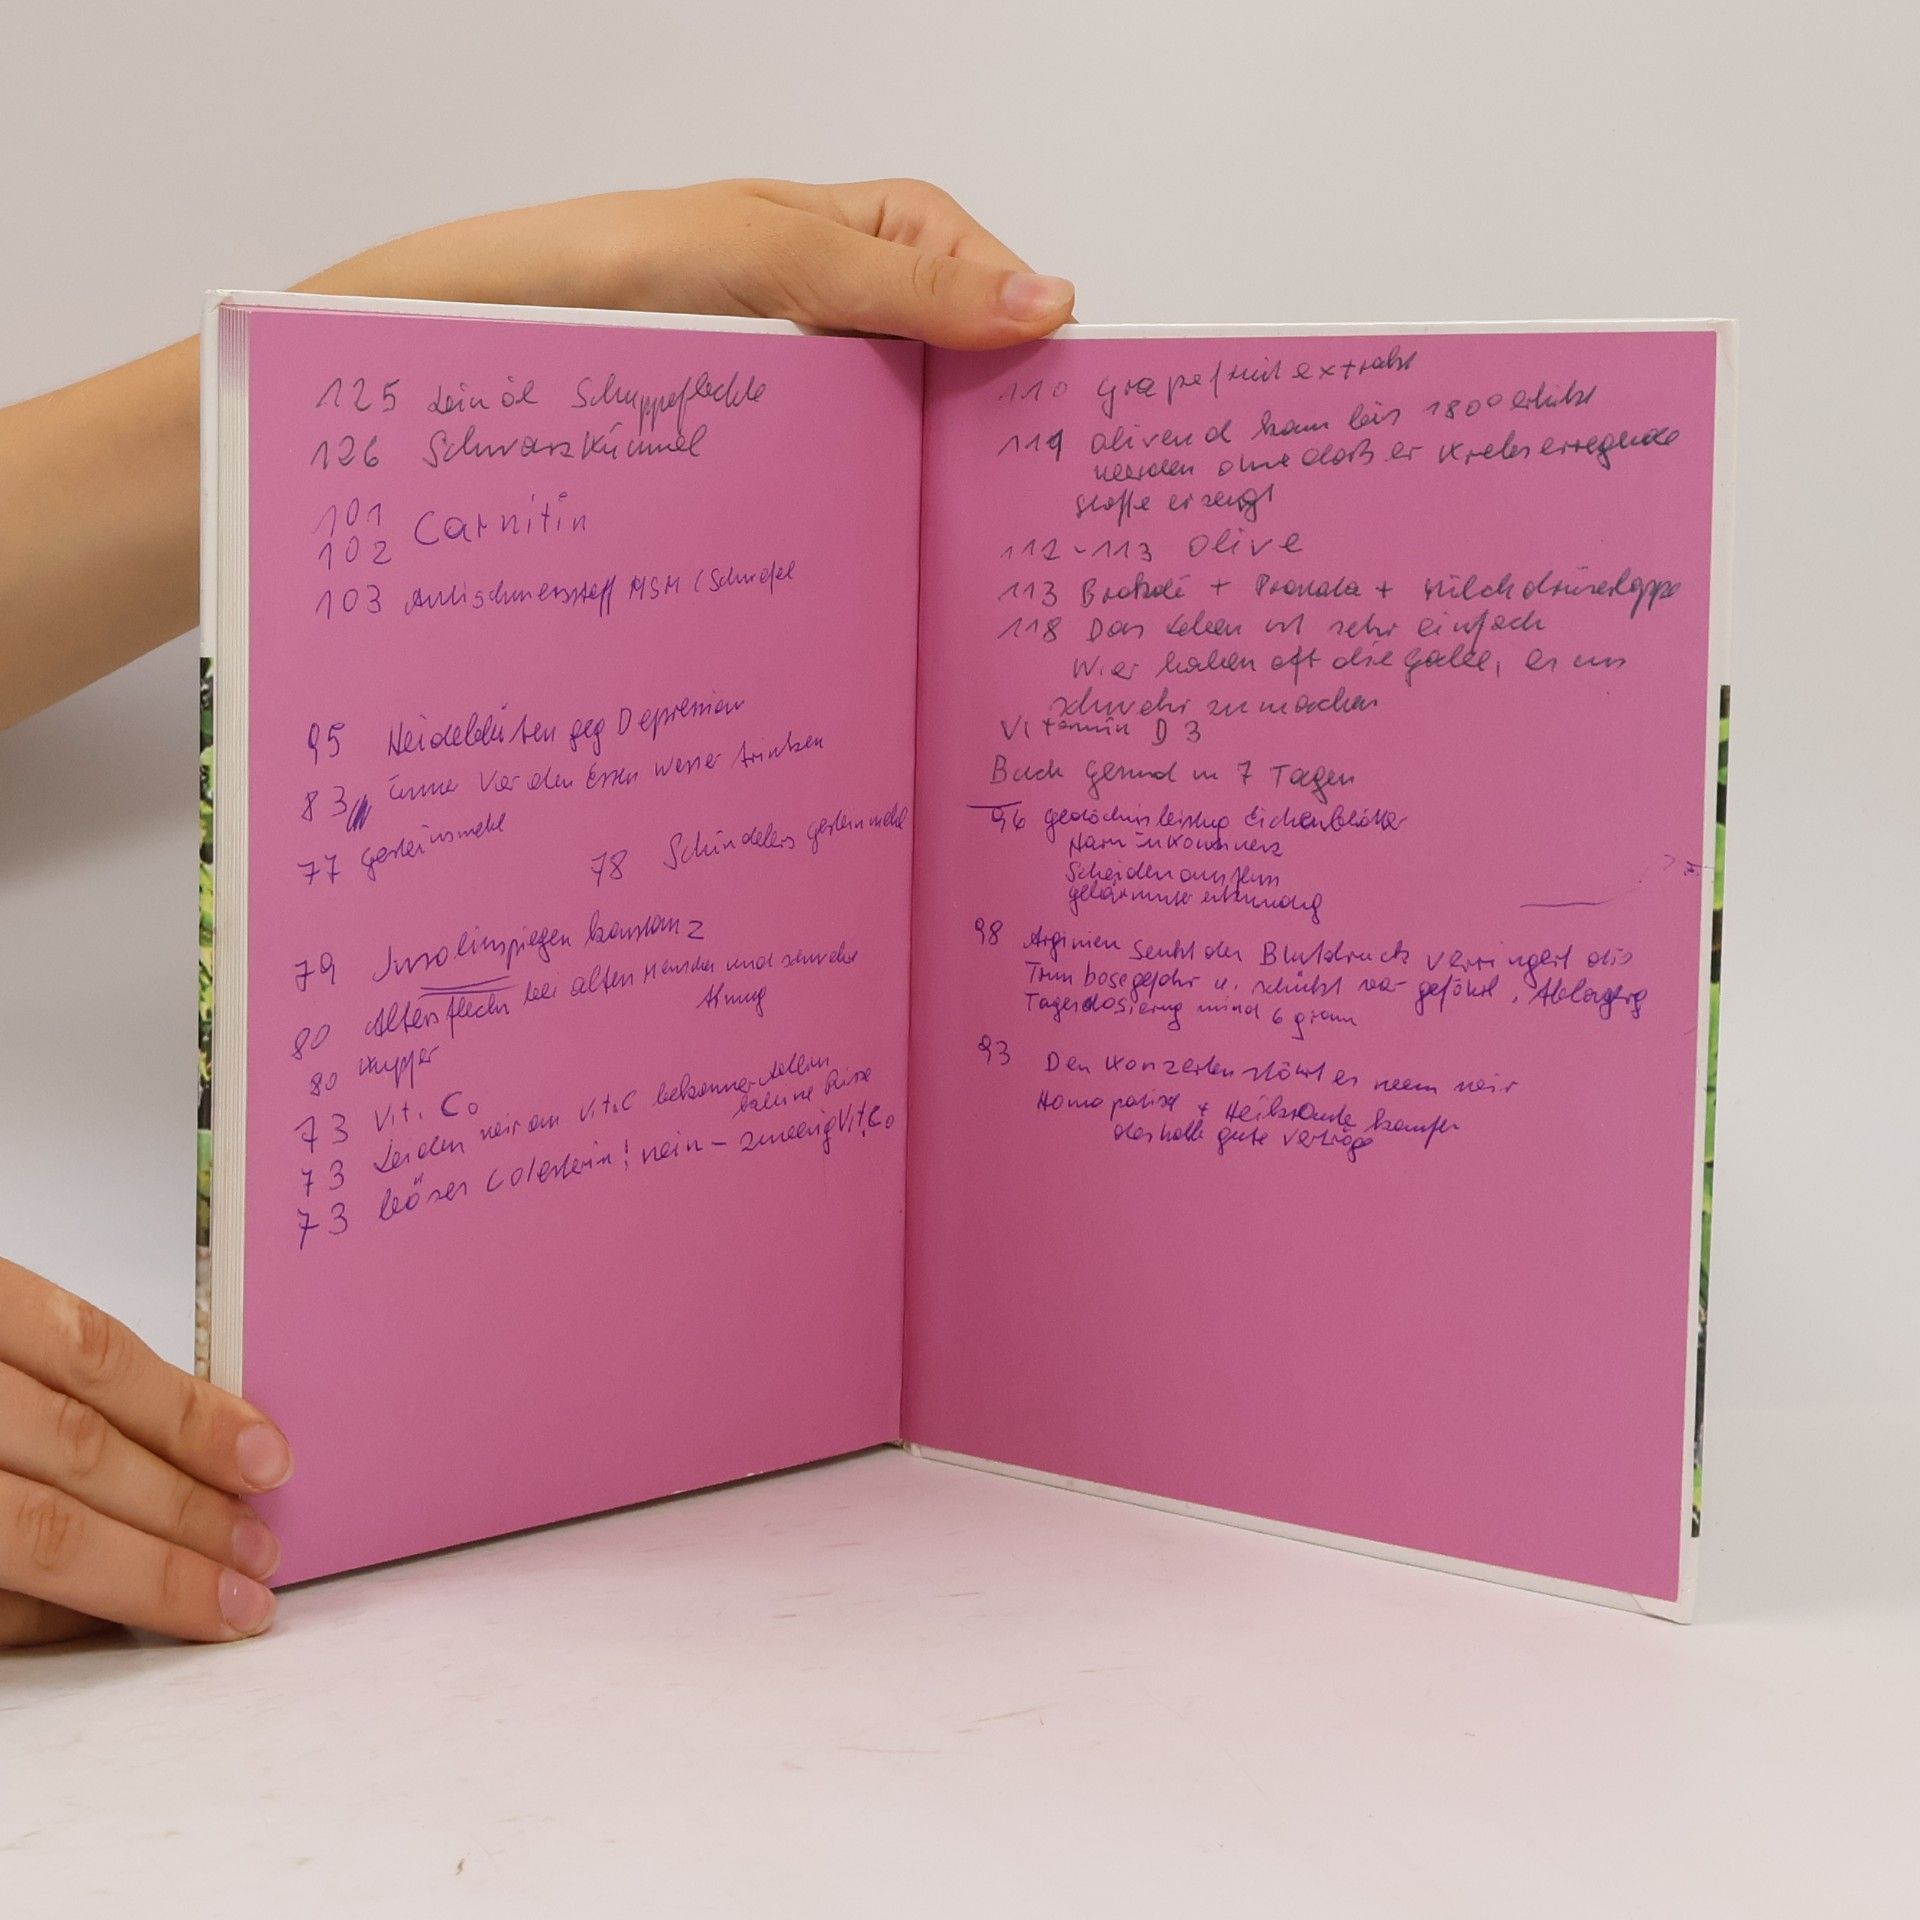 125 Leinöl Schuppeflechte
126 Schwarzkümmel
101
102 Carnitin
103 Antischmerzstoff MSM (Schwefel
95 Heideblüten geg Depression
83 immer Vor den Essen Wasser trinken
77 Gesteinsmehl
78 Schindelers gesteinmehl
79 Insolinspiegen konstanz
80 Altersflecken bei alten Menschen und
Atmug
80 Kupfer
73 Vit. C
73 Leiden wir an Vit.C bekommen Adern
kleine Risse
73 böses Colesterin! nein – zuwenig Vit.C
110 Grapefruit extrakt
119 olivenöl kann bis 180° erhitzt
werden ohne daß er Krebserregende
Stoffe erzeugt
112-113 Olive
113 Brokoli + Pronada +
118 Das Leben ist sehr einfach
Wier haben oft die Gabe, es uns
schwehr zu machen
Vitamin D 3
Buch Gesund in 7 Tagen
96 gedächnisleistug Eichenblätter
Harninkontinenz
Scheidenausfluss
98 Arginien Senkt den Blutdruck verringert die
Trombosegefahr u. schützt vor gefähsl. Ablagrug
Tagesdosierug mind 6 gram
93 Den Konzerten stört es wenn wir
Homopatisch + Heilkunde kaufen
deshalb gute Verträge